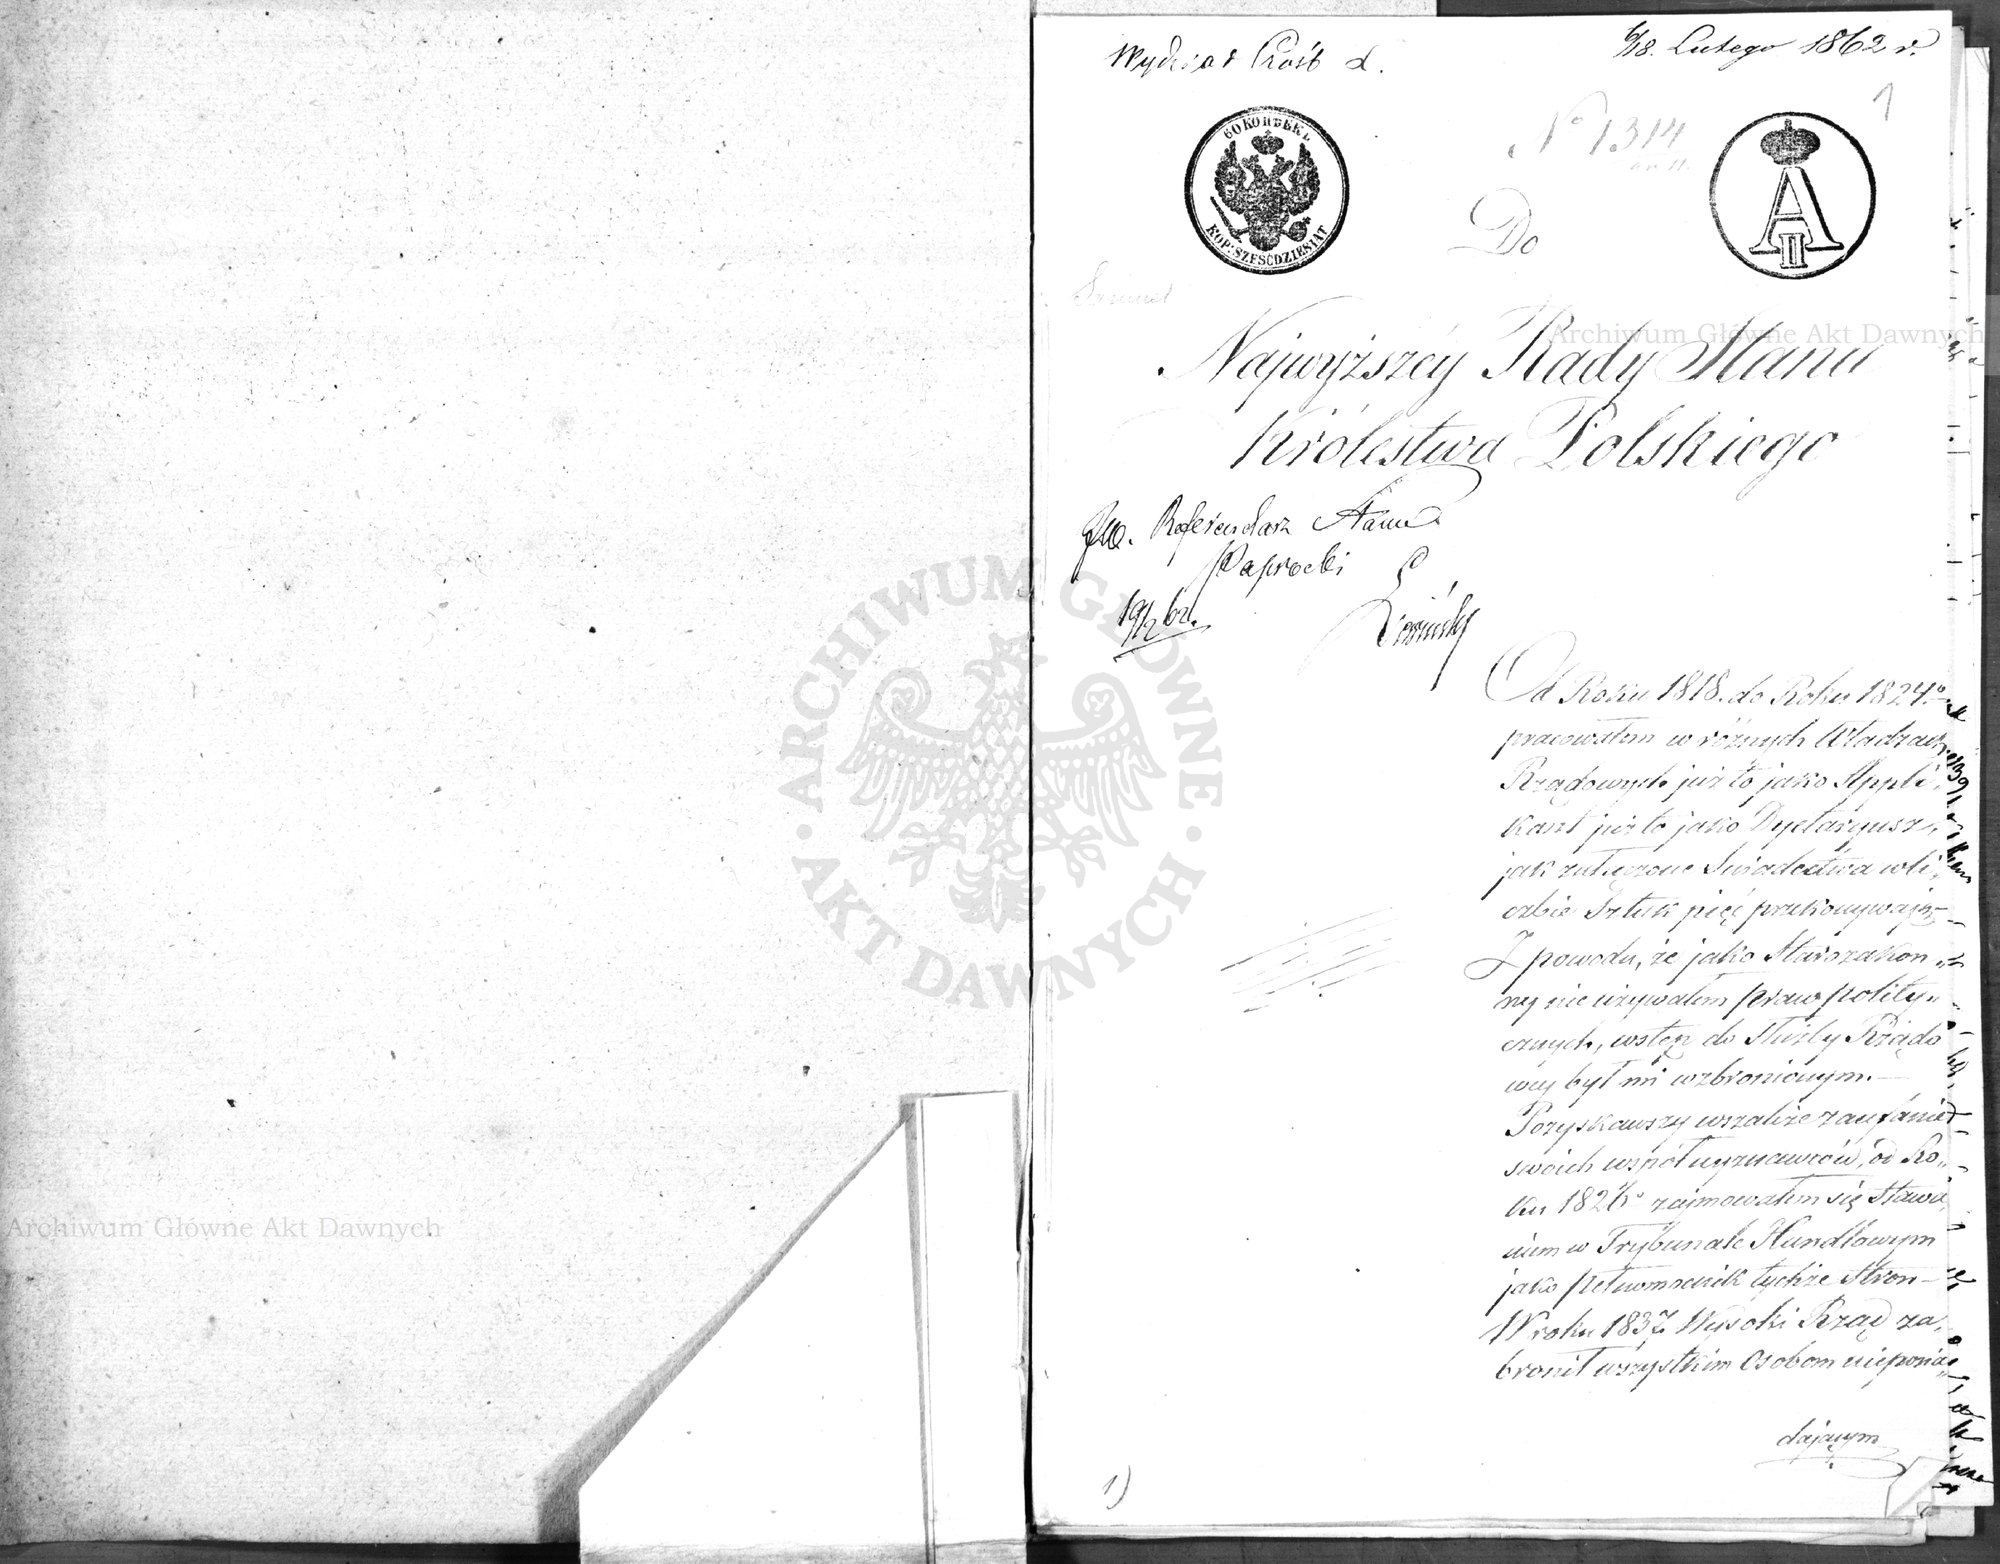 Wydział Próśb d.
6/18. Lutego 1862 r.
1
60 КОПѢЕКЪ
KOP: SZEŚĆDZIESIĄT
A II
No 1314
Do
Samuel
Najwyższéy Rady Stanu
Królestwa Polskiego
JW. Referendarz Stanu
Paprocki
19/2 62.
Od Roku 1818. do Roku 1824.o
pracowałem w różnych Władzach
Rządowych już to jako Appli-
kant już to jako Dyetaryusz,
jak załączone Świadectwa w li-
czbie Sztuk pięć przekonywają
Z powodu, że jako Starozakon-
ny nie używałem praw polity-
cznych, wstęp do Służby Rządo
wej był mi wzbronionym.—
Pozyskawszy wszakże zaufanie
swoich współwyznawców, od Ro-
ku 1826o zajmowałem się Stawa-
niem w Trybunale Handlowym
jako pełnomocnik tychże Stron—
W roku 1837. Wysoki Rząd za-
bronił wszystkim Osobom nieposia-
dającym
1)
Archiwum Główne Akt Dawnych
Archiwum Główne Akt Dawnych
ARCHIWUM GŁÓWNE AKT DAWNYCH